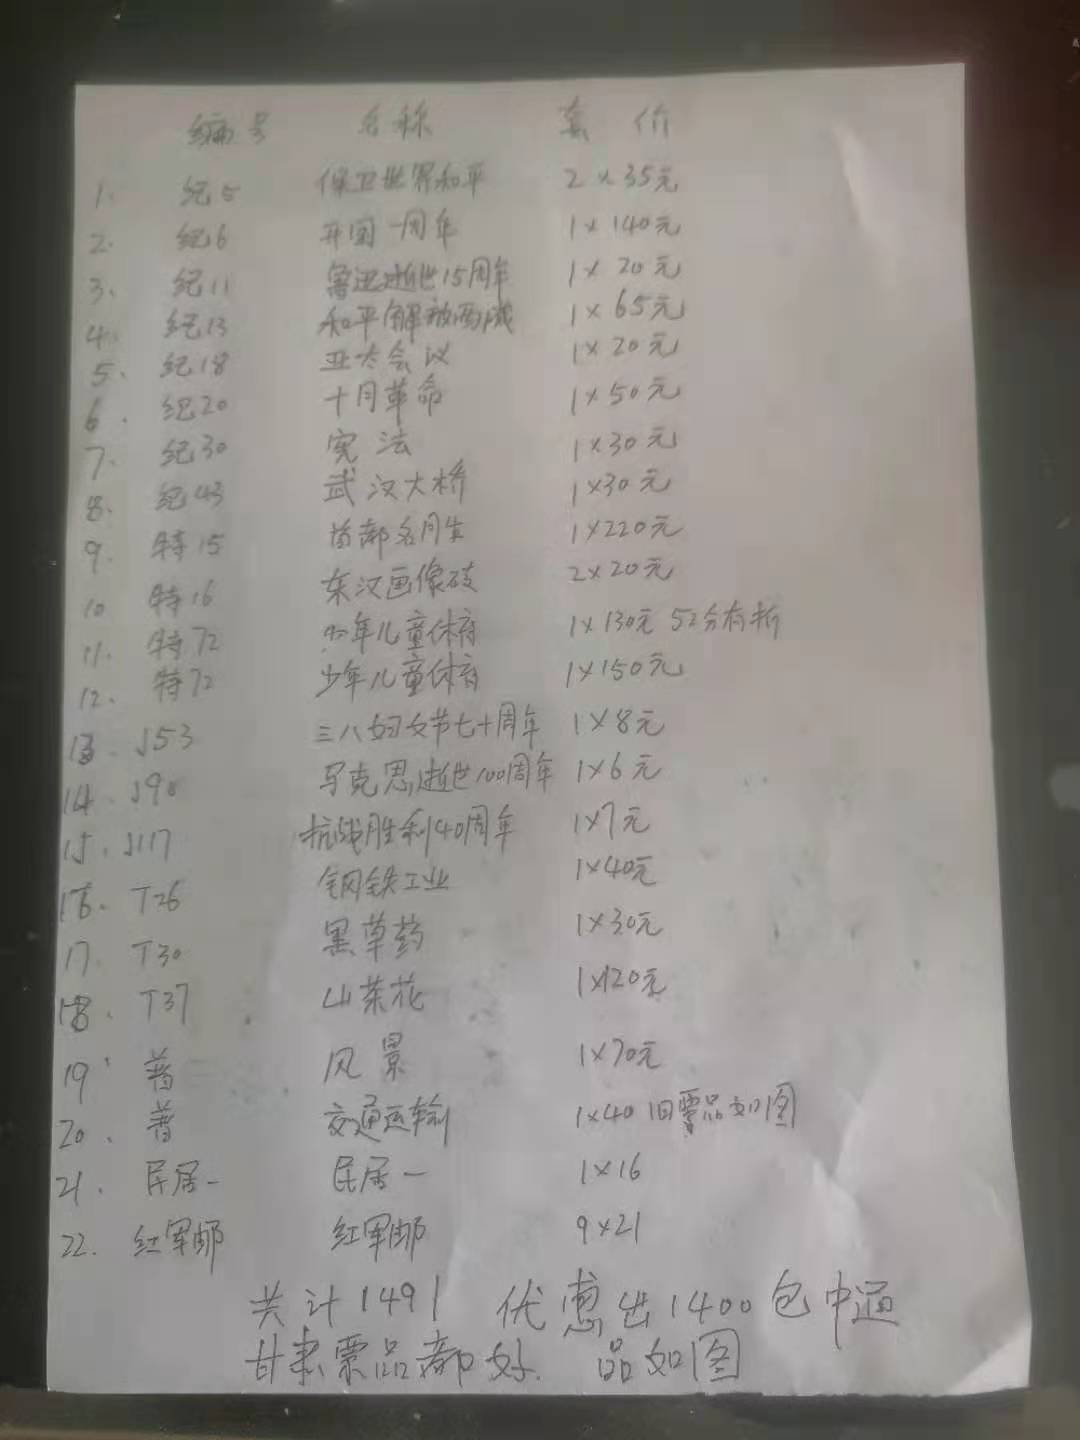 编号 名称 套价
1. 纪5 保卫世界和平 2×35元
2. 纪6 开国一周年 1×140元
3. 纪11 鲁迅逝世15周年 1×20元
4. 纪13 和平解放西藏 1×65元
5. 纪18 亚太会议 1×20元
6. 纪20 十月革命 1×50元
7. 纪30 宪法 1×30元
8. 纪43 武汉大桥 1×30元
9. 特15 首都名胜 1×220元
10 特16 东汉画像砖 2×20元
11. 特72 少年儿童体育 1×130元 52分有折
12. 特72 少年儿童体育 1×150元
13. J53 三八妇女节七十周年 1×8元
14. J90 马克思逝世100周年 1×6元
15. J117 抗战胜利40周年 1×7元
16. T26 钢铁工业 1×40元
17. T30 黑草药 1×30元
18. T37 山茶花 1×120元
19. 普 风景 1×70元
20. 普 交通运输 1×40 旧票品如图
21. 民居一 民居一 1×16
22. 红军邮 红军邮 9×21
共计1491 优惠出1400包中通
甘肃票品都好. 品如图